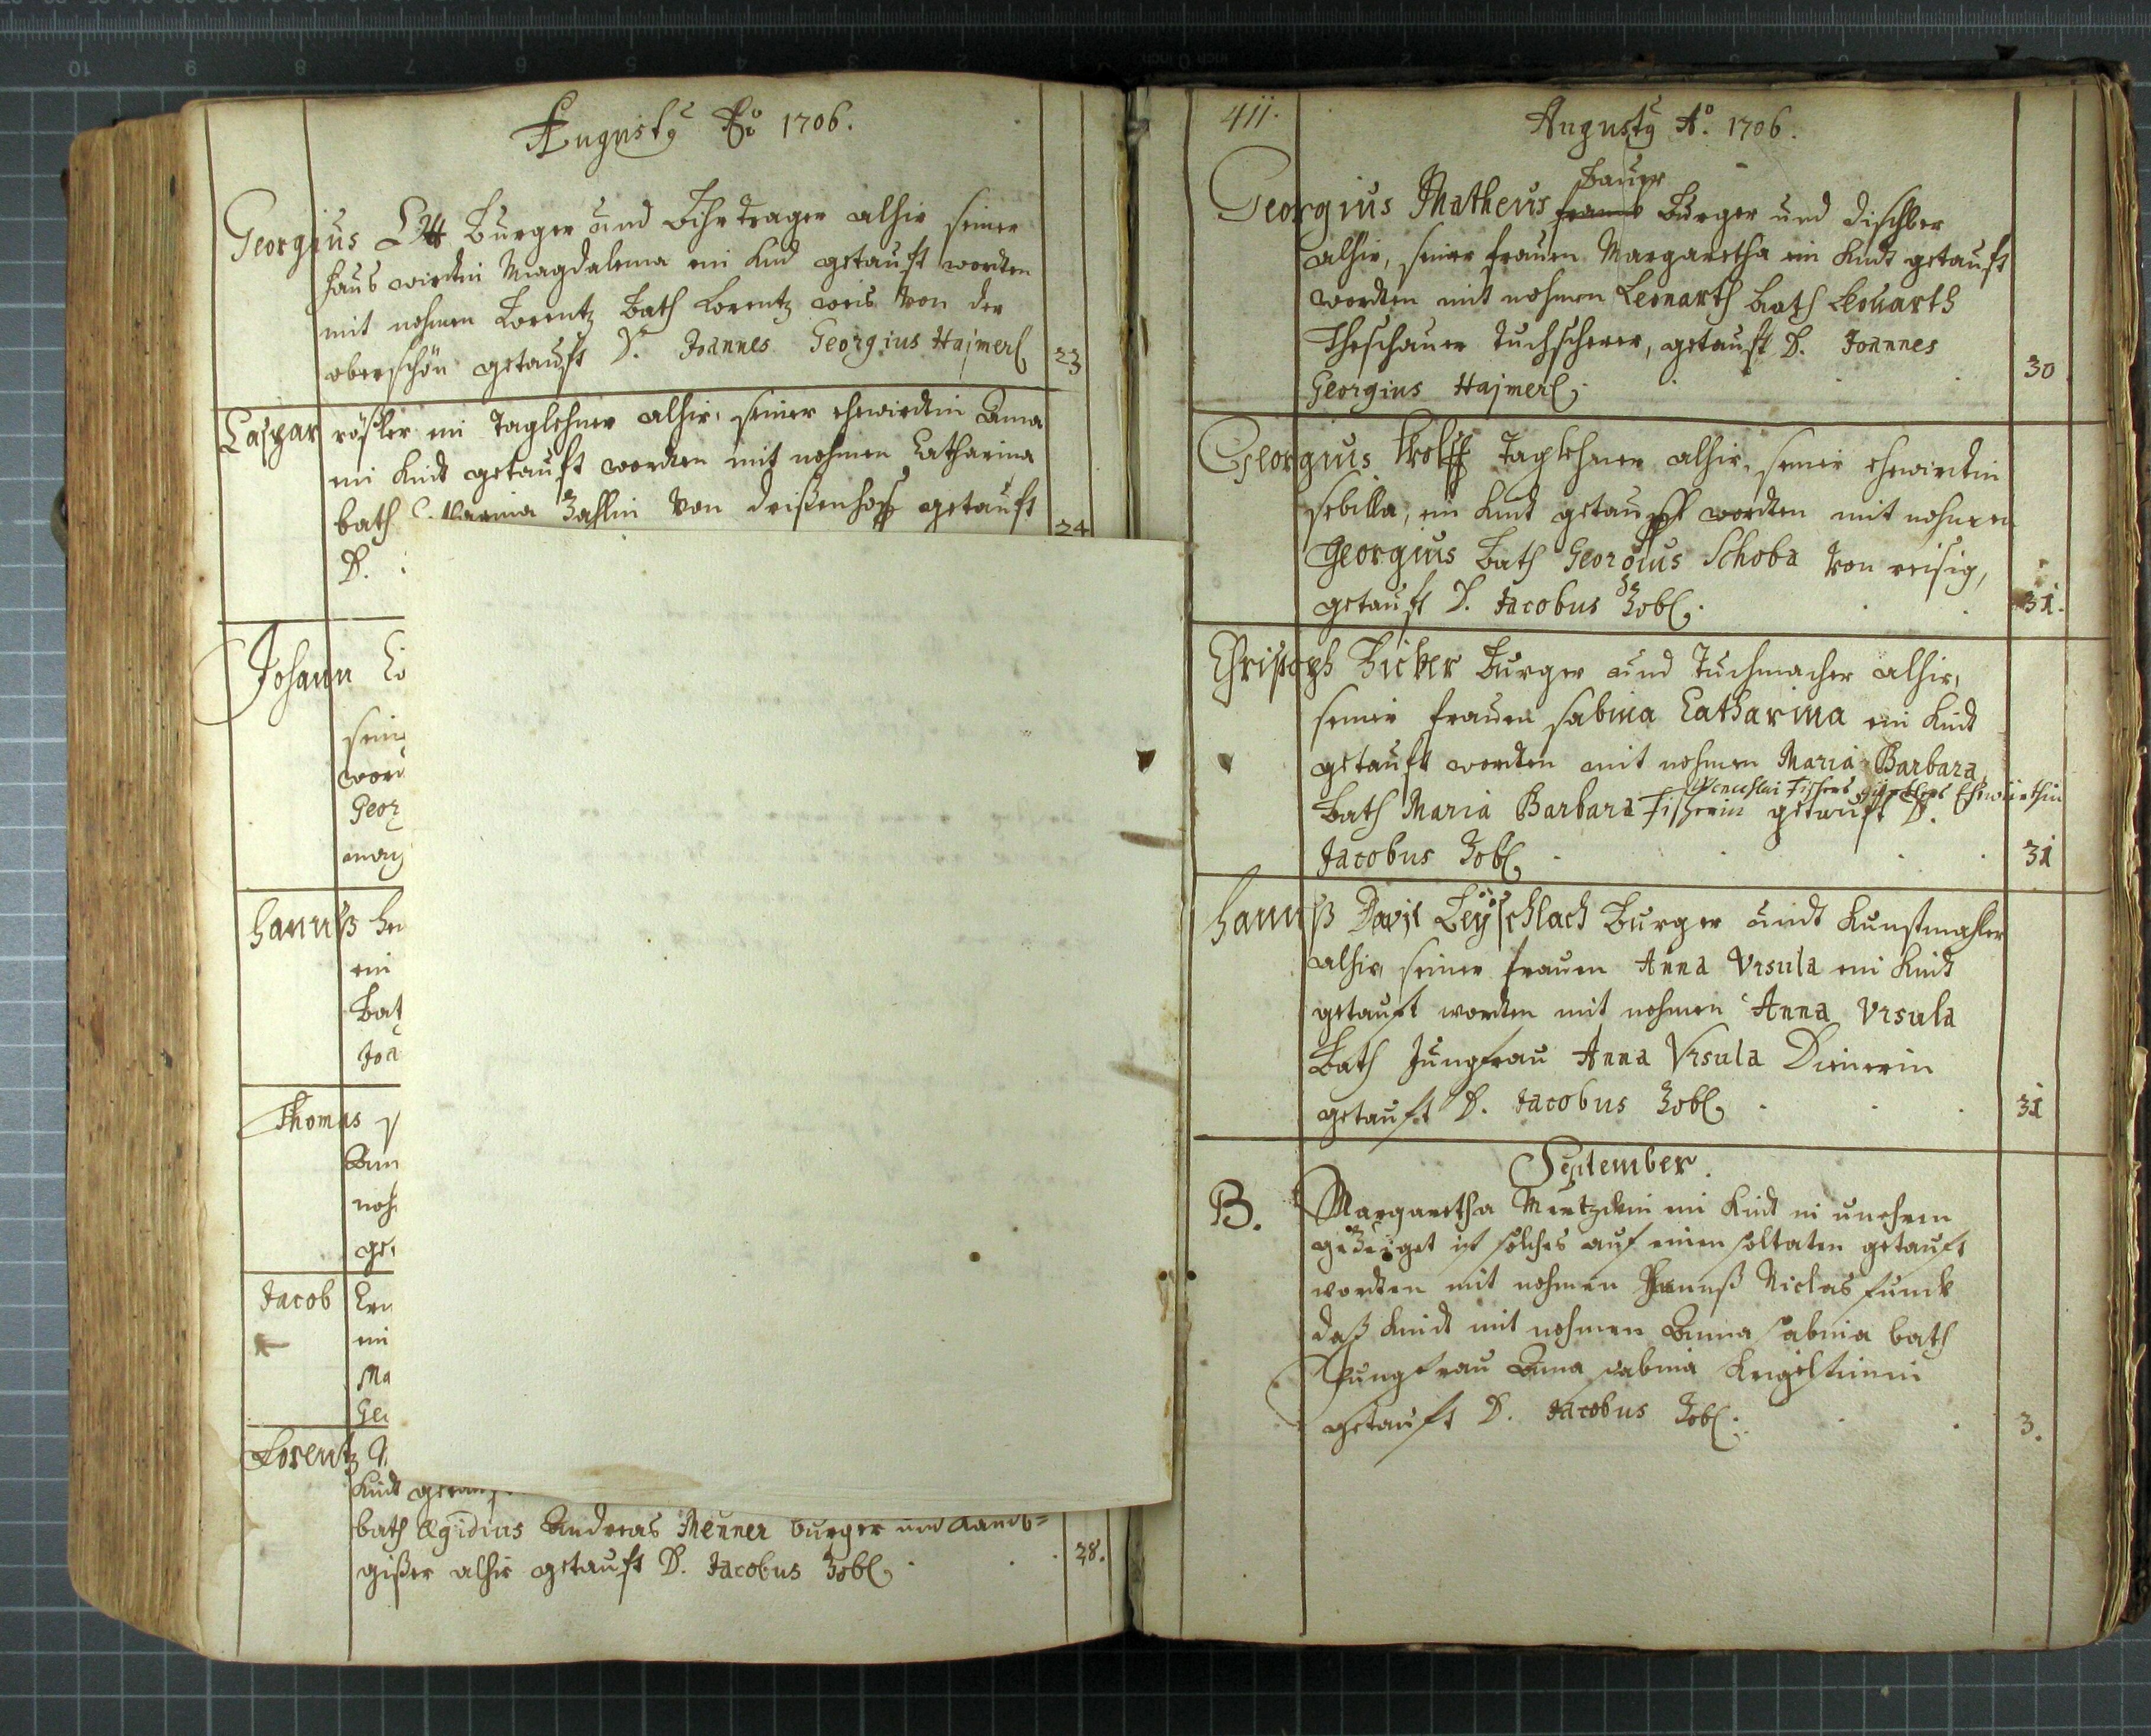 Augusty Ao 1706.
Georgius Ott Burger und Bihrtrager alhir seiner
haus wirdtin Magdalena ein Kind getaufft worden
mit nohmen Lorentz Bath Lorentz weis von der
oberschön getaufft P. Joannes Georgius Hajmerl
23
Caspar rösler ein Taglehner alhir, seiner ehewirdtin Anna
ein Kindt getaufft worden mit nohmen Catharina
bath Zahlin von getaufft
24
P.
Johann
sein
word
Geor
Hannß
ein
Bat
Joa
Thomas
Ann
noh
get
Jacob
ein
Ma
Geo
Lorentz
Kindt
bath Ægidius Andreas Renner burger und Kandl=
gißer alhir getaufft P. Jacobus Zobl.
28.
411.
Augusty Ao. 1706.
Bauer
Georgius Matheus Burger und dischler
alhir, seiner frauen Margaretha ein Kindt getaufft
wordten mit nohmen Leonarth bath Leonarth
Theschauer Tuchscherer, getaufft P. Joannes
Georgius Hajmerl.
30
Georgius Wolff Taglehner alhir, seiner ehewirdtin
sebilla, ein Kindt getaufft wordten mit nohmen
Georgius Bath Georgius Schoba von reisig,
getaufft P. Jacobus Zobl.
31.
Christoph Zicker Burger und Tuchmacher alhir,
seiner frauen sabina Catharina ein Kindt
getaufft wordten mit nohmen Maria Barbara
Wenceslai Fischers Ehewürthin
Bath Maria Barbara Fischerin getaufft P.
Jacobus Zobl.
31
Hannß Davit Leÿschlach Burger undt Kunstmahler
alhir, seiner frauen Anna Vrsula ein Kindt
getaufft worden mit nohmen Anna Vrsula
Bath Jungfrau Anna Vrsula Dienerin
getaufft P. Jacobus Zobl.
31
September.
B. Margaretha ein Kindt in unehren
gezeiget ist solches auf einen soltaten getaufft
wordten mit nohmen Hannß Niclas funck
daß Kindt mit nohmen Anna sabina bath
Jungfrau Anna sabina
getaufft P. Jacobus Zobl.
3.